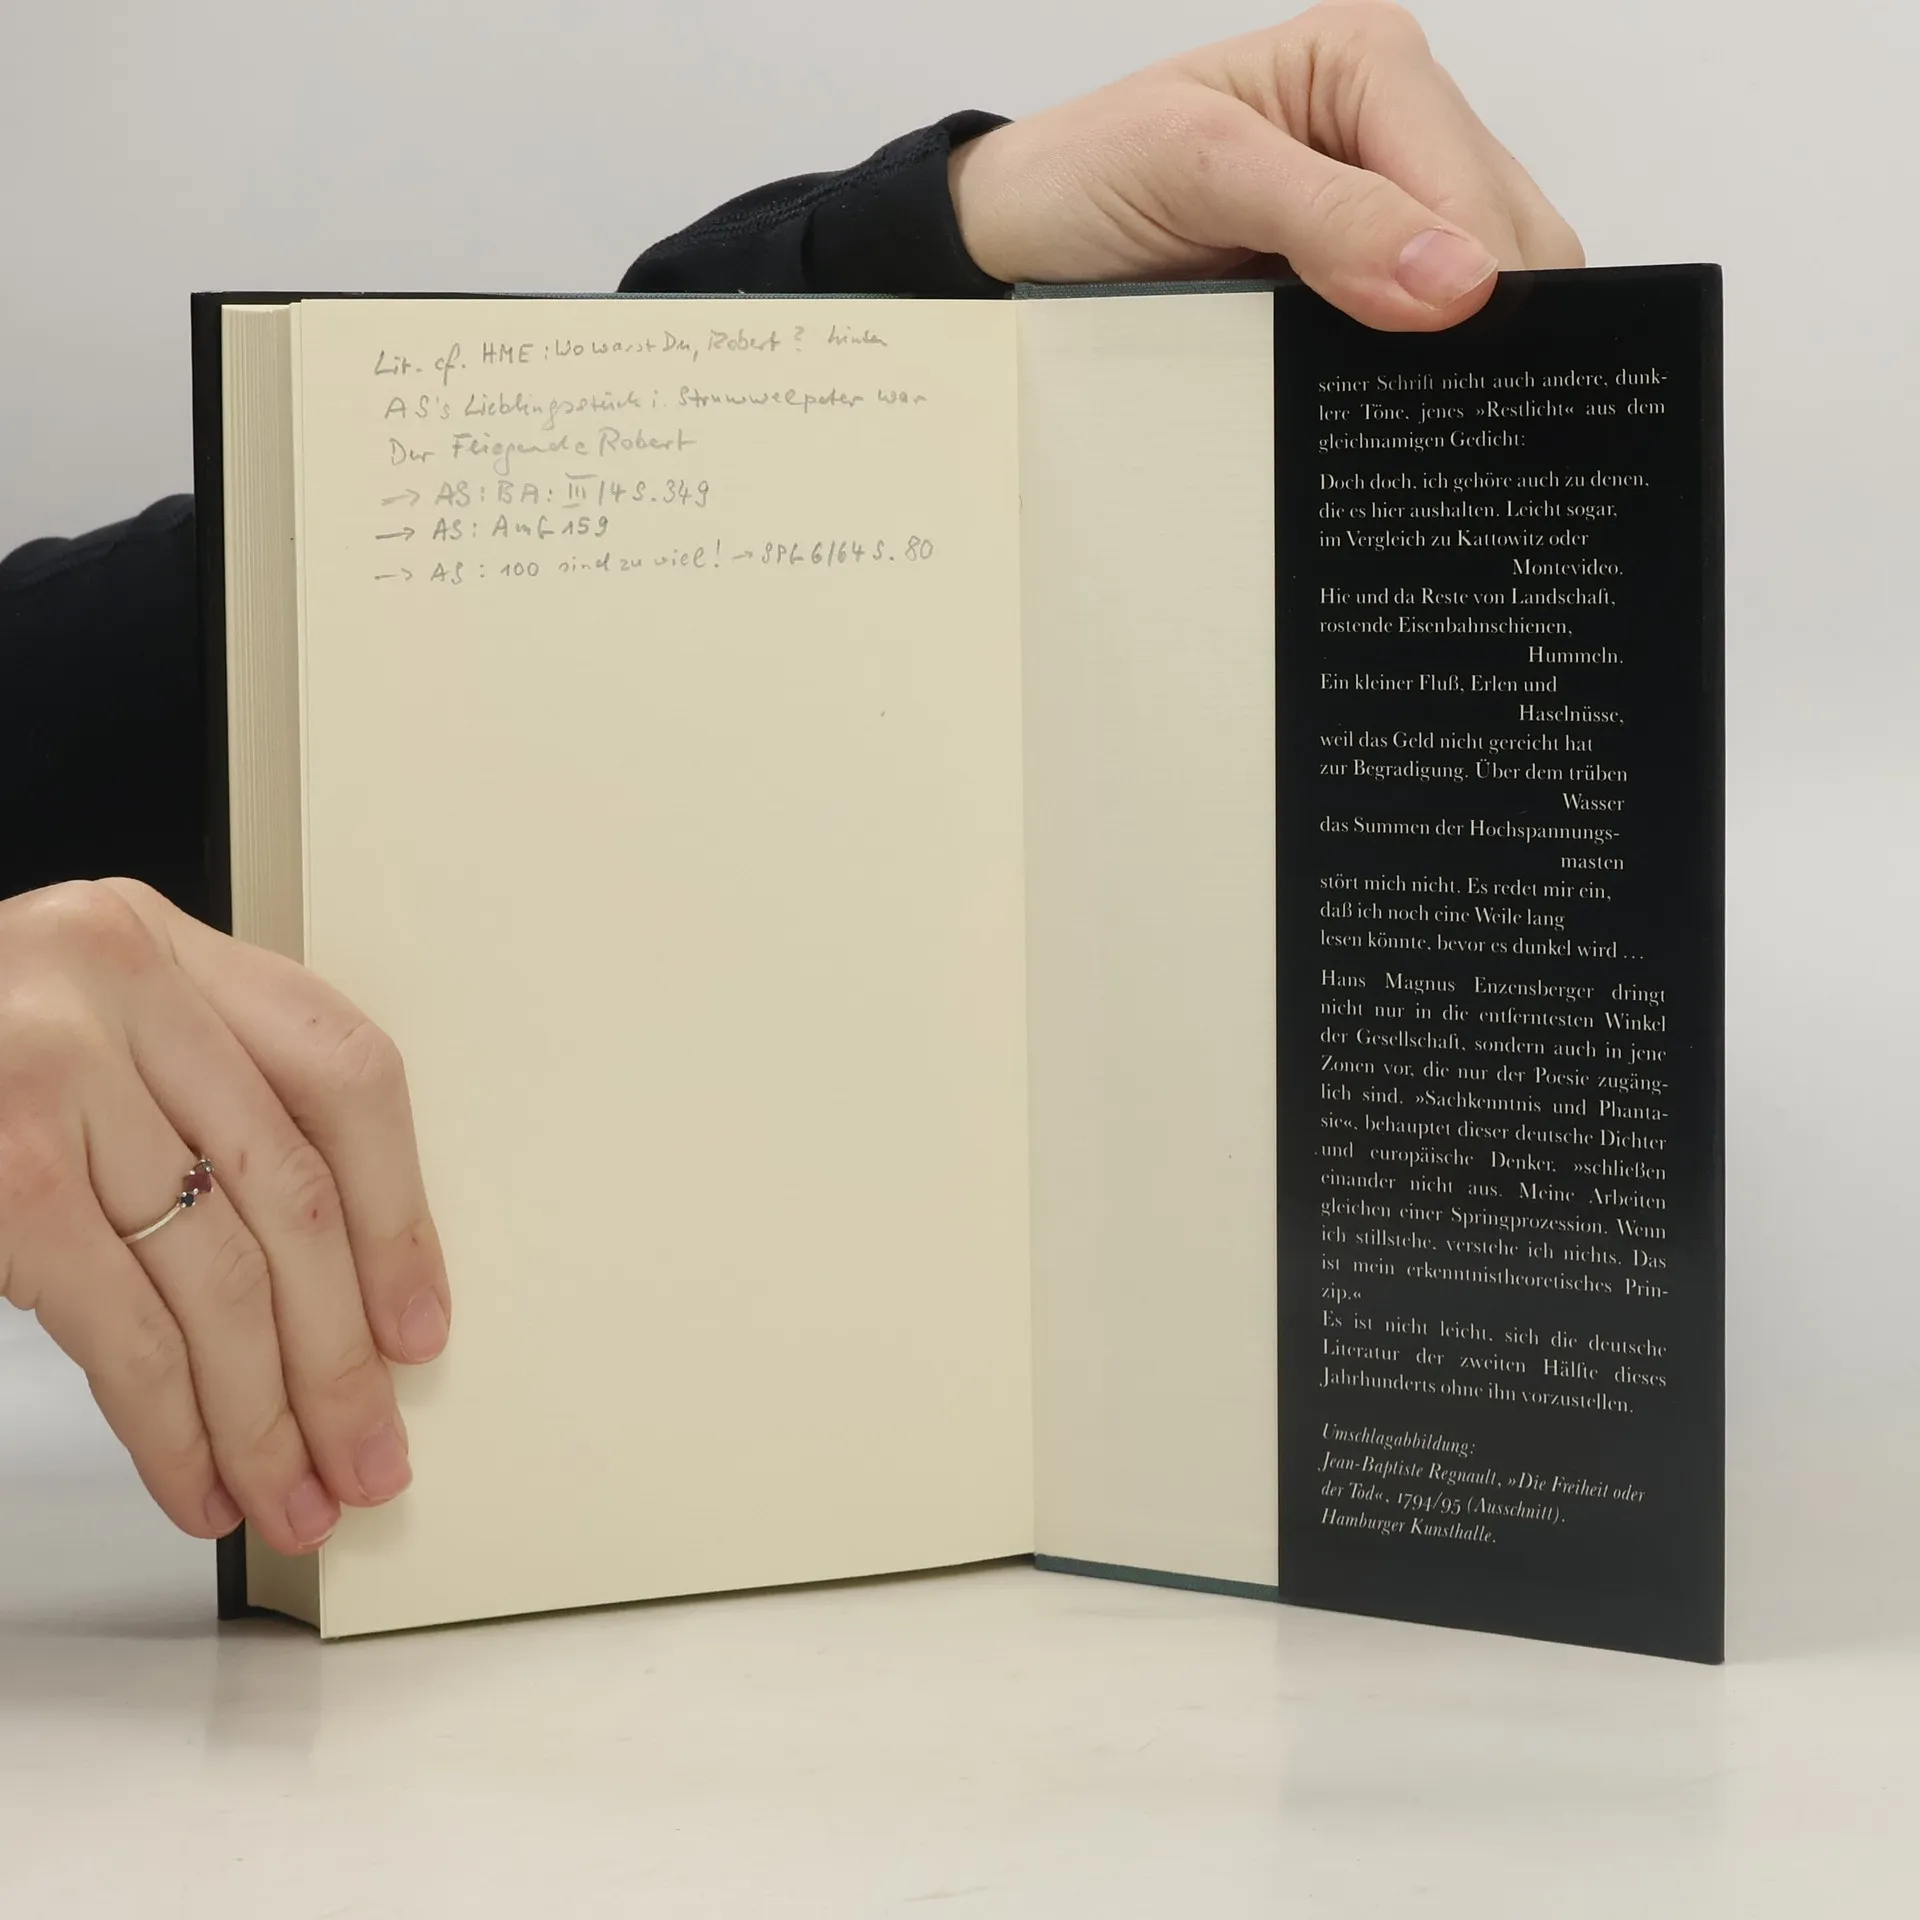 Lit. cf. HME: Wo warst Du, Robert? hinten
AS's Lieblingsstück i. Struwwelpeter war
Der Fliegende Robert
→ AS: BA: III/4 S. 349
→ AS: AmL 159
→ AS: 100 sind zu viel! → SPL 6/64 S. 80
seiner Schrift nicht auch andere, dunk-
lere Töne, jenes »Restlicht« aus dem
gleichnamigen Gedicht:
Doch doch, ich gehöre auch zu denen,
die es hier aushalten. Leicht sogar,
im Vergleich zu Kattowitz oder
Montevideo.
Hie und da Reste von Landschaft,
rostende Eisenbahnschienen,
Hummeln.
Ein kleiner Fluß, Erlen und
Haselnüsse,
weil das Geld nicht gereicht hat
zur Begradigung. Über dem trüben
Wasser
das Summen der Hochspannungs-
masten
stört mich nicht. Es redet mir ein,
daß ich noch eine Weile lang
lesen könnte, bevor es dunkel wird ...
Hans Magnus Enzensberger dringt
nicht nur in die entferntesten Winkel
der Gesellschaft, sondern auch in jene
Zonen vor, die nur der Poesie zugäng-
lich sind. »Sachkenntnis und Phanta-
sie«, behauptet dieser deutsche Dichter
und europäische Denker, »schließen
einander nicht aus. Meine Arbeiten
gleichen einer Springprozession. Wenn
ich stillstehe, verstehe ich nichts. Das
ist mein erkenntnistheoretisches Prin-
zip.«
Es ist nicht leicht, sich die deutsche
Literatur der zweiten Hälfte dieses
Jahrhunderts ohne ihn vorzustellen.
Umschlagabbildung:
Jean-Baptiste Regnault, »Die Freiheit oder
der Tod«, 1794/95 (Ausschnitt).
Hamburger Kunsthalle.